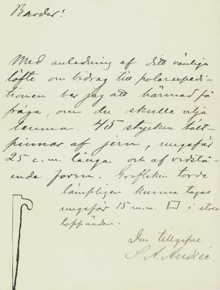 Broder!
Med anledning af ditt vänliga
löfte om bidrag till polarexpedi-
tionen ber jag att härmed få
fråga, om du skulle vilja
lemna 415 stycken tält-
pinnar af jern, ungefär
25 c.m. långa och af vidstå-
ende form. Grofleken torde
lämpligen kunna tagas
ungefär 15 m.m. i
Din tillgifne
S. A. Andrée